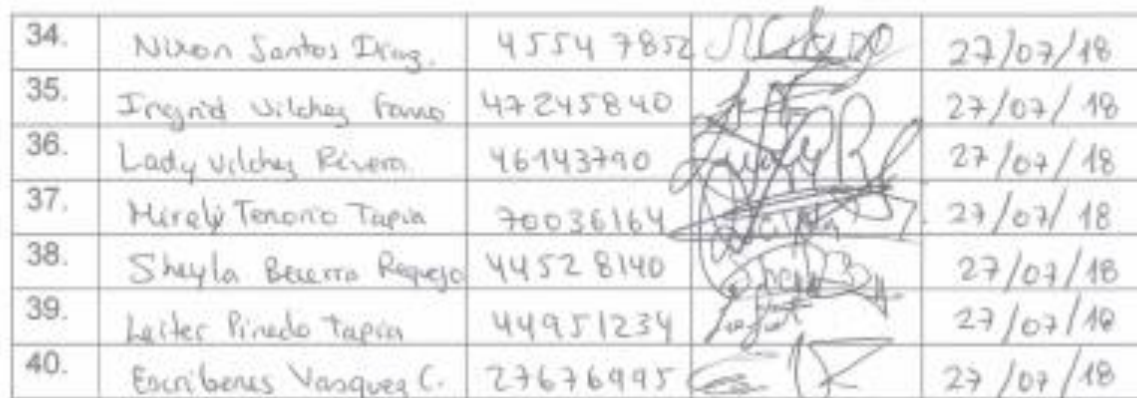 34. Nixon Santos Diaz. 45547852 27/07/18
35. Ingrid Vilchez 47245840 27/07/18
36. Lady Vilchez Rivera. 46143790 27/07/18
37. Mirely Tenorio Tapia 70036164 27/07/18
38. Sheyla Becerra Requejo 44528140 27/07/18
39. Leiter Pinedo Tapia 44951234 27/07/18
40. Vasquez C. 27676995 27/07/18